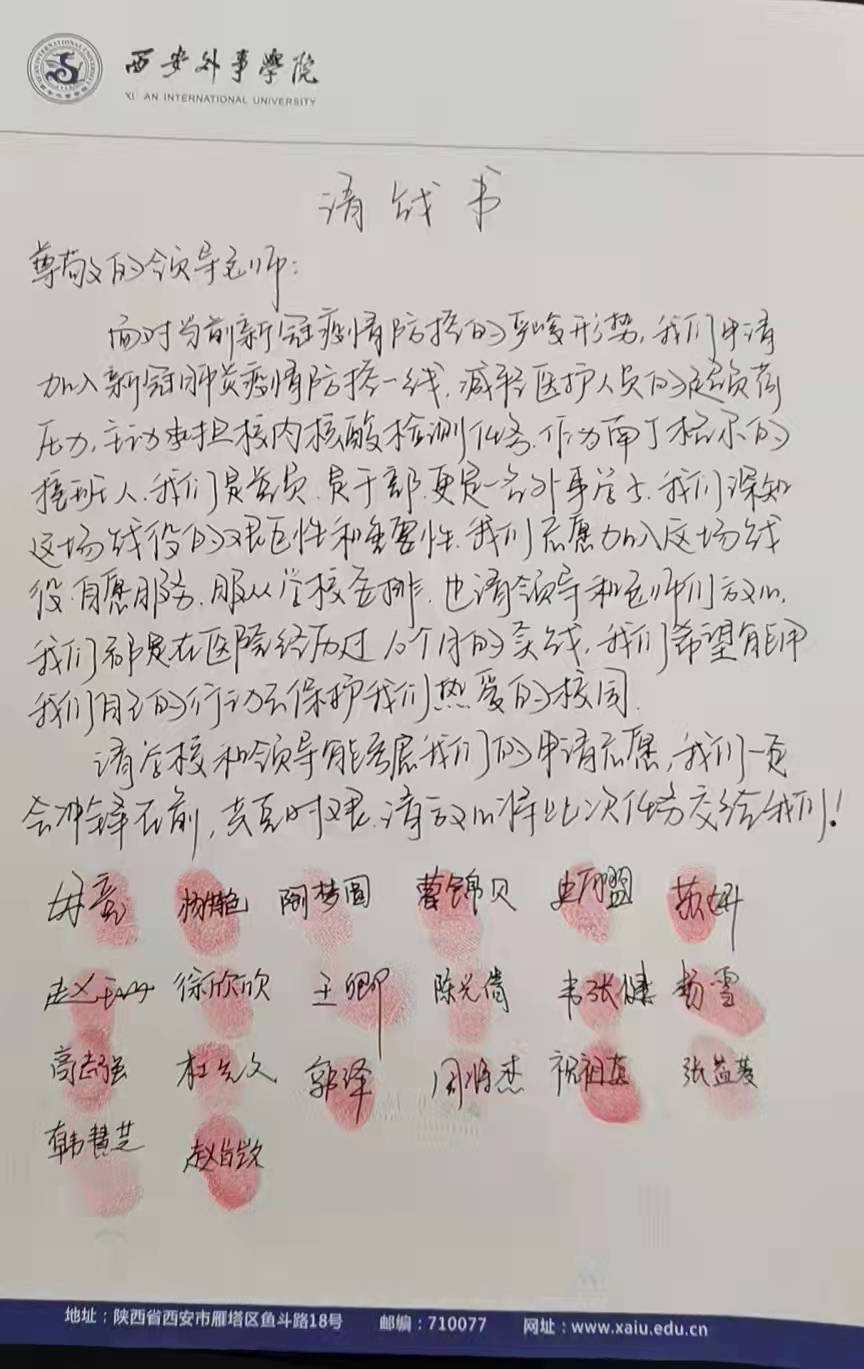 西安外事学院
XI'AN INTERNATIONAL UNIVERSITY
请战书
尊敬的领导老师:
面对当前新冠疫情防控的严峻形势,我们申请
加入新冠肺炎疫情防控一线,减轻医护人员的超负荷
压力,主动承担校内核酸检测任务.作为南丁格尔的
接班人.我们是党员.是干部.更是一名外事学子.我们深知
这场战役的艰巨性和重要性.我们志愿加入这场战
役.自愿服务.服从学校安排.也请领导和老师们放心.
我们都是在医院经历过10个月的实战,我们希望能用
我们自己的行动去保护我们热爱的校园.
请学校和领导能考虑我们的申请志愿,我们一定
会冲锋在前,共克时艰.请放心将此次任务交给我们!
胡亮 杨艳 陶梦圆 曹锦贝 史丽盟 苏妍
徐欣欣 王卿 陈光倩 韦张健 杨雪
高志强 杜先文 郭泽 周将杰 祝祖英 张益菱
韩慧芝
地址:陕西省西安市雁塔区鱼斗路18号 邮编:710077 网址:www.xaiu.edu.cn